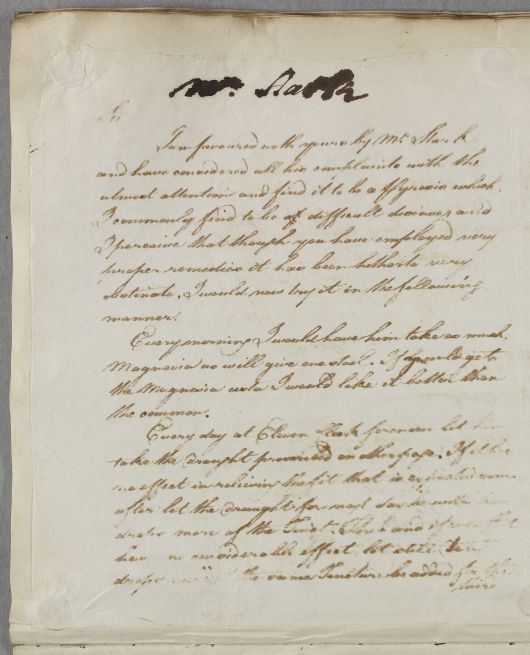 Mr. Stark
Sir
I am favoured with yours by Mr. Stark
and have considered all his complaints with the
utmost attention and find it to be a Pyrosis which
I commonly find to be of difficult diseases and
I perceive that though you have employed very
proper remedies it has been hitherto very
obstinate. I would now try it in the following
manner.
Every morning I would have him take as much
Magnesia as will give one stool. If could get
the Magnesia usta I would like it better than
the common.
Every day at Eleven Clock forenoon let him
take the draught prescribed on other page. If it has
no effect in relieving the fit that is
after let the draught for next day be with
drops more of the Tinct. and if
have no considerable effect, let still ten
drops the same Tincture be added for the
third